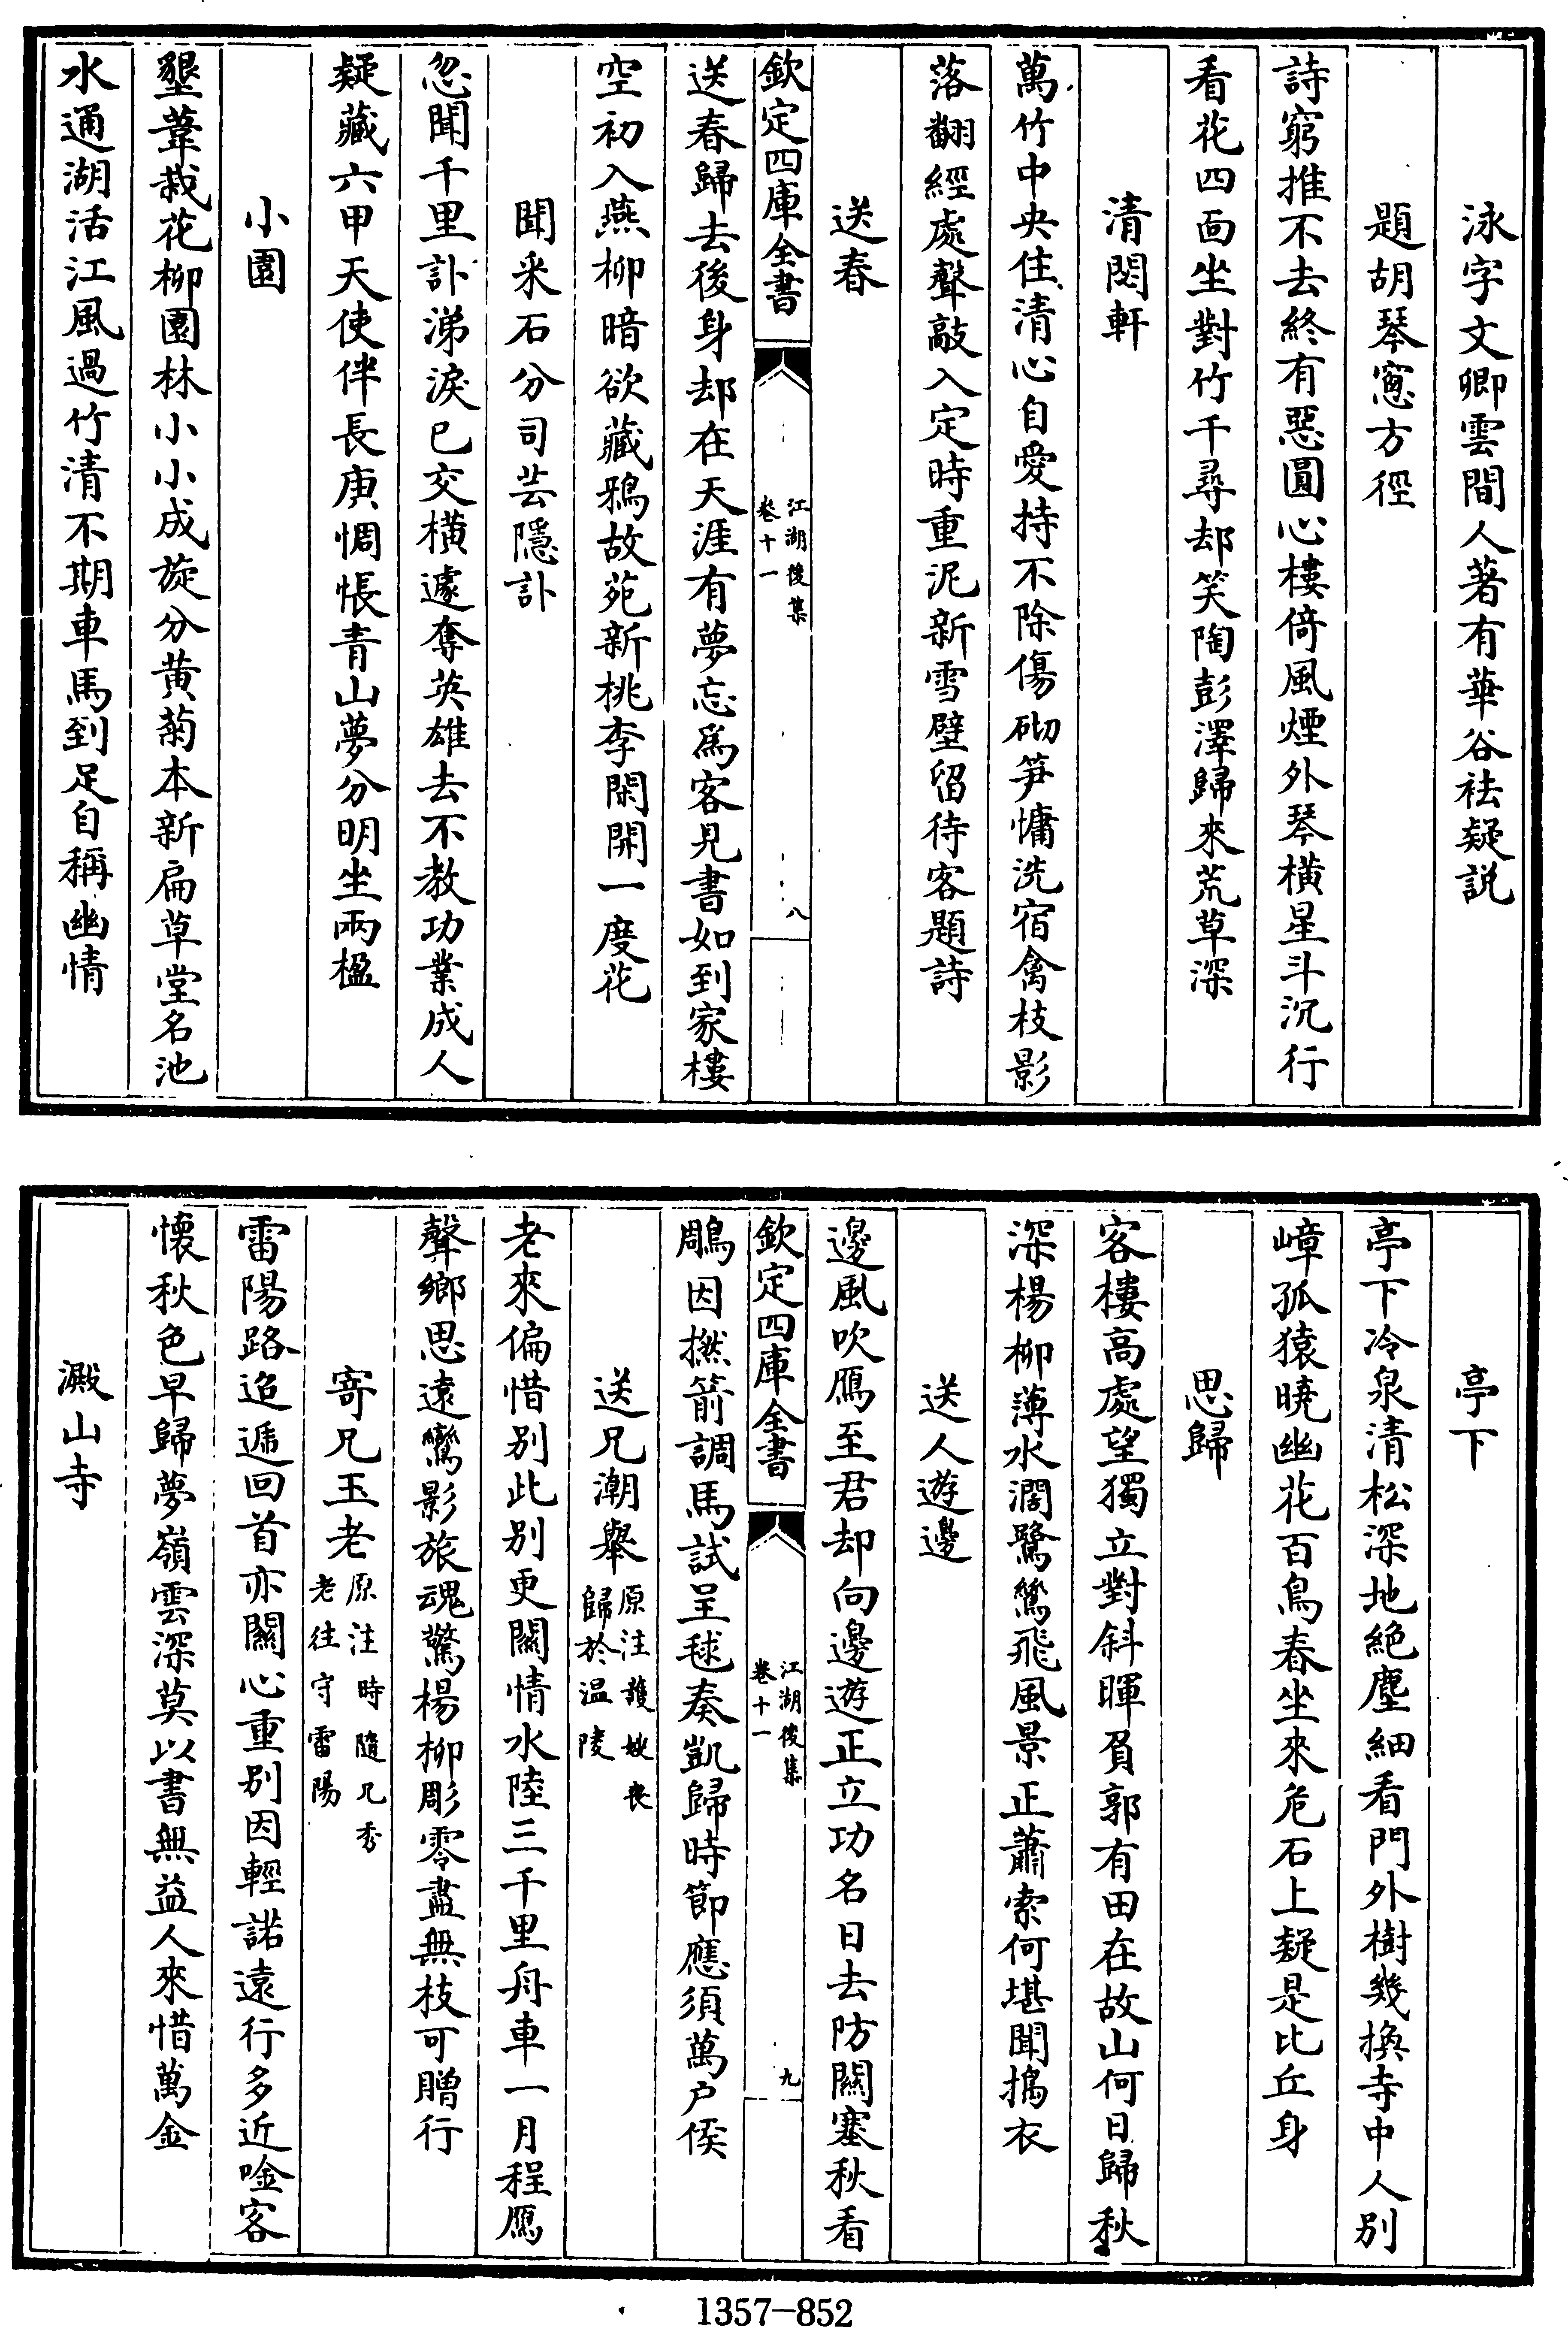 泳字文卿雲間人著有華谷祛疑説
題胡琴窻方徑
詩窮推不去終有惡圓心樓倚風煙外琴橫星斗沉行
看花四面坐對竹千尋却笑陶彭澤歸來荒草深
清閟軒
萬竹中央住清心自愛持不除傷砌笋慵洗宿禽枝影
落翻經處聲敲入定時重泥新雪壁留待客題詩
送春
欽定四庫全書
江湖後集
卷十一
八
送春歸去後身却在天涯有夢忘為客見書如到家樓
空初入燕柳暗欲藏鴉故苑新桃李閑開一度花
聞采石分司芸隱訃
忽聞千里訃涕淚已交橫遽奪英雄去不教功業成人
疑藏六甲天使伴長庚惆悵青山夢分明坐兩楹
小園
墾葦栽花柳園林小小成旋分黄菊本新扁草堂名池
水通湖活江風過竹清不期車馬到足自稱幽情
亭下
亭下冷泉清松深地絶塵細看門外樹幾換寺中人别
嶂孤猿曉幽花百鳥春坐來危石上疑是比丘身
思歸
客樓高處望獨立對斜暉負郭有田在故山何日歸秋
深楊柳薄水濶鷺鷥飛風景正蕭索何堪聞搗衣
送人遊邊
邊風吹鴈至君却向邊遊正立功名日去防關塞秋看
欽定四庫全書
江湖後集
卷十一
九
鵰因撚箭調馬試呈毬奏凱歸時節應須萬户侯
送兄潮舉原注護嫂喪歸於温陵
老來偏惜别此别更關情水陸三千里舟車一月程鴈
聲鄉思遠鸞影旅魂驚楊柳彫零盡無枝可贈行
寄兄玉老原注時隨兄秀老往守雷陽
雷陽路迢遞回首亦關心重别因輕諾遠行多近唫客
懷秋色早歸夢嶺雲深莫以書無益人來惜萬金
澱山寺
1357—852